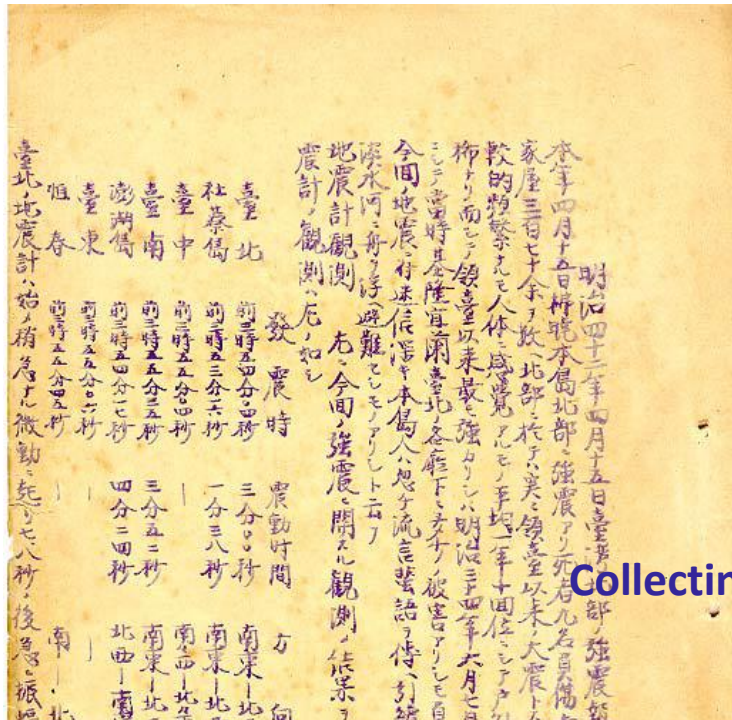 明治四十二年四月十五日臺灣北部ノ強震
本年四月十五日拂暁本島北部ニ強震アリ死者九名負傷
家屋三百七十余ヲ敗ヘ北部ニ於テハ実ニ領臺以来ノ大震ト
較的頻繁ナルモ人体ニ感覺アルモノ平均一年十回位ニシテ
稀ナリ而シテ領臺以来最モ強カリシハ明治三十四年六月七日
ニシテ當時基隆宜蘭臺北各廳下ニ多少ノ被害アリシモ
今回ノ地震ニ付迷信深キ本島人ハ忽チ流言蜚語ヲ傳ヘ引続
淡水河ニ舟ヲ浮避難セシモノアリシト云フ
地震計観測 左ニ今回ノ強震ニ関スル観測ノ結果ヲ
震計ノ観測ハ左ノ如シ
發震時 震動時間 方向
臺北 前三時五四分〇四秒 三分〇〇秒 南東ー北
社寮島 前三時五三分一六秒 一分三八秒 南東ー北
臺中 前三時五五分〇四秒 ー 南西ー北
臺南 前三時五五分三五秒 三分五二秒 南東ー北
澎湖島 前三時五四分一七秒 四分二四秒 北西ー南
臺東 前三時五五分〇六秒 ー ー
恒春 前三時五五分四五秒 ー 南ー北
臺北ノ地震計ハ始メ稍急ナル微動ニ起リ七、八秒ノ後急ニ振
Collectin